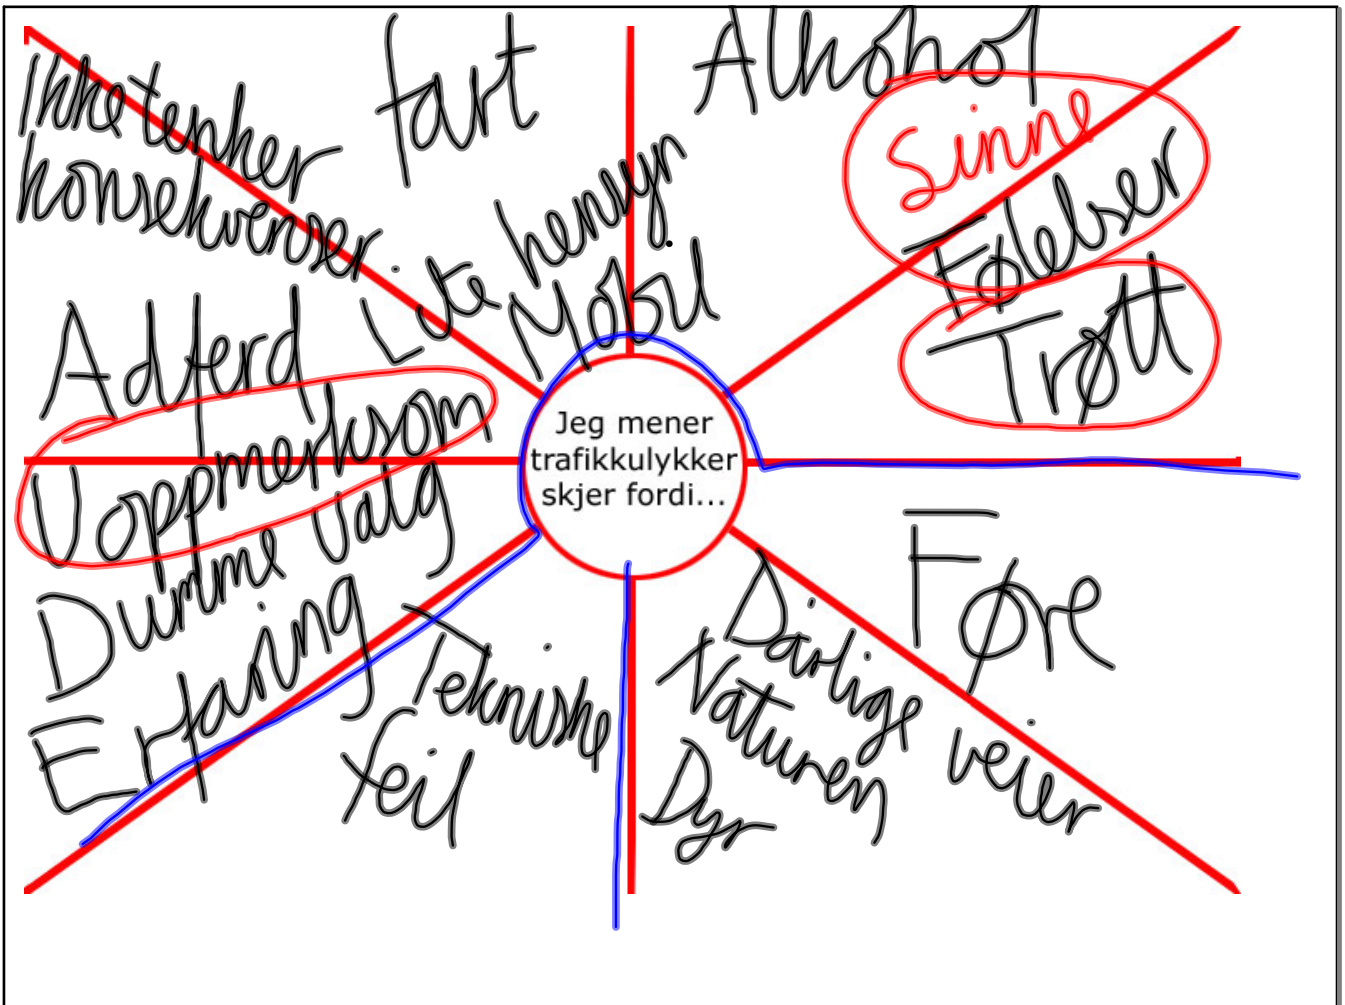 Ikke tenker
konsekvenser.
fart
Alkohol
Sinne
Følelser
Trøtt
Lite hensyn
Mobil
Adferd
Uoppmerksom
Dumme valg
Erfaring
Jeg mener
trafikkulykker
skjer fordi...
Tekniske
feil
Føre
Dårlige veier
Naturen
Dyr